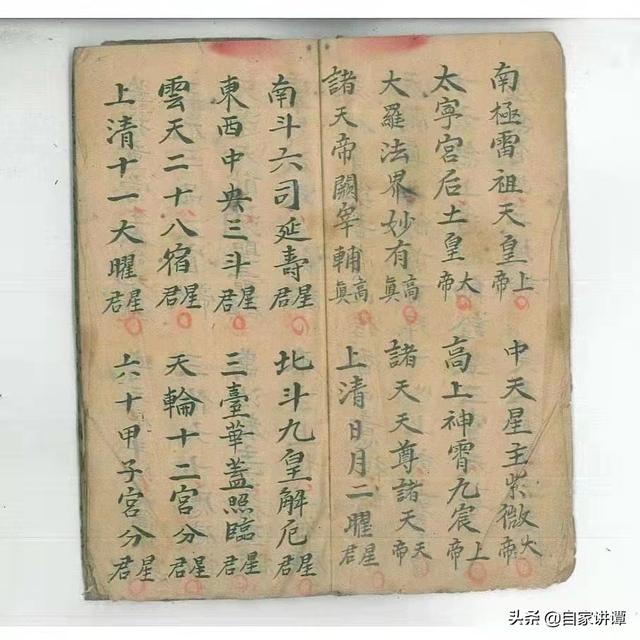 南極雷祖天皇上帝
中天星主紫微大帝
太寧宮后土皇大帝
高上神霄九宸上帝
大羅法界妙有高眞
諸天天尊諸天天帝
諸天帝闕宰輔高眞
上清日月二曜星君
南斗六司延壽星君
北斗九皇解厄星君
東西中央三斗星君
三臺華蓋照臨星君
雲天二十八宿星君
天輪十二宮分星君
上清十一大曜星君
六十甲子宮分星君
头条 @自家讲谭